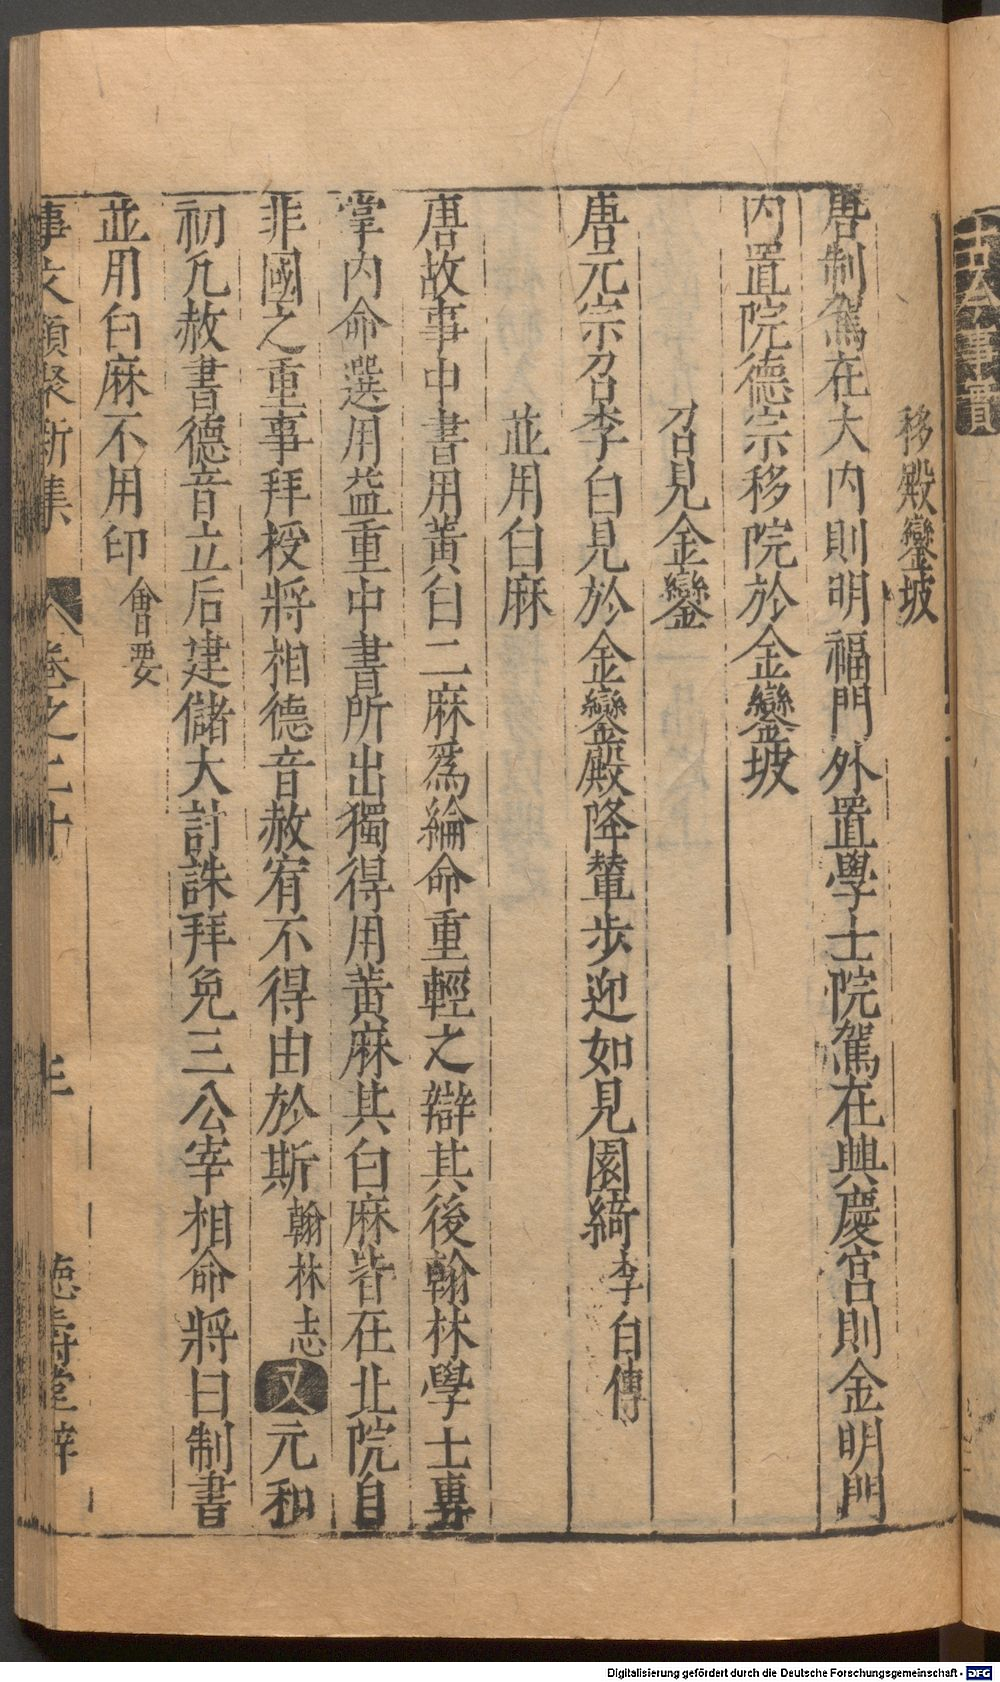 移殿鑾坡
唐制駕在大內則明福門外置學士院駕在興慶宮則金明門
內置院德宗移院於金鑾坡
召見金鑾
唐元宗召李白見於金鑾殿降輦步迎如見園綺李白傳
並用白麻
唐故事中書用黃白二麻爲綸命重輕之辯其後翰林學士專
掌內命選用益重中書所出獨得用黃麻其白麻皆在北院自
非國之重事拜授將相德音赦宥不得由於斯翰林志又元和
初凡赦書德音立后建儲大討誅拜免三公宰相命將曰制書
並用白麻不用印會要
事文類聚新集 卷之二十 德壽堂梓
Digitalisierung gefördert durch die Deutsche Forschungsgemeinschaft - DFG